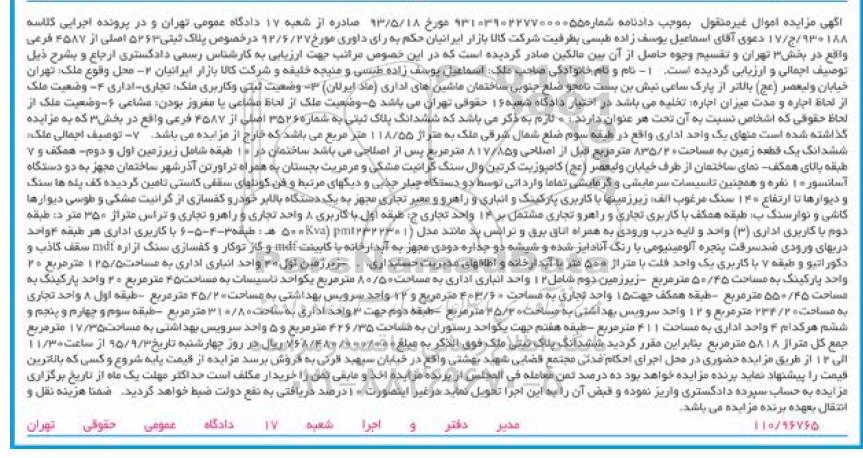 آگهی مزایده اموال غیرمنقول بموجب دادنامه شماره۹۳۱۰۳۹۰۲۲۷۷۰۰۰۰۵۵ مورخ ۹۳/۵/۱۸ صادره از شعبه ۱۷ دادگاه عمومی تهران و در پرونده اجرایی کلاسه
۹۳۰۱۸۸/ج/۱۷ دعوی آقای اسماعیل یوسف زاده طبسی بطرفیت شرکت کالا بازار ایرانیان حکم به رای داوری مورخ۹۲/۶/۲۷ درخصوص پلاک ثبتی۵۲۶۳ اصلی از ۴۵۸۷ فرعی
واقع در بخش۳ تهران و تقسیم وجوه حاصل از آن بین مالکین صادر گردیده است که در این خصوص مراتب جهت ارزیابی به کارشناس رسمی دادگستری ارجاع و بشرح ذیل
توصیف اجمالی و ارزیابی گردیده است. ۱- نام و نام خانوادگی صاحب ملک: اسماعیل یوسف زاده طبسی و منیجه خلیفه و شرکت کالا بازار ایرانیان ۲- محل وقوع ملک: تهران
خیابان ولیعصر (عج) بالاتر از پارک ساعی نبش بن بست نامجو ضلع جنوبی ساختمان ماشین های اداری (ماد ایران) ۳- وضعیت ثبتی وکاربری ملک: تجاری-اداری ۴- وضعیت ملک
از لحاظ اجاره و مدت میزان اجاره: تخلیه می باشد در اختیار دادگاه شعبه۱۶ حقوقی تهران می باشد ۵-وضعیت ملک از لحاظ مشاعی یا مفروز بودن: مشاعی ۶-وضعیت ملک از
لحاظ حقوقی که اشخاص نسبت به آن تحت هر عنوان دارند: - لازم به ذکر می باشد که ششدانگ پلاک ثبتی به شماره۳۵۲۶ اصلی از ۴۵۸۷ فرعی واقع در بخش۳ که به مزایده
گذاشته شده است منهای یک واحد اداری واقع در طبقه سوم ضلع شمال شرقی ملک به متراژ ۱۱۸/۵۵ متر مربع می باشد که خارج از مزایده می باشد. ۷- توصیف اجمالی ملک:
ششدانگ یک قطعه زمین به مساحت۸۳۵/۲۰ مترمربع قبل از اصلاحی و۸۱۷/۸۵ مترمربع پس از اصلاحی می باشد ساختمان در ۱۰ طبقه شامل زیرزمین اول و دوم- همکف و ۷
طبقه بالای همکف- نمای ساختمان از طرف خیابان ولیعصر (عج) کامپوزیت کرتین وال سنگ گرانیت مشکی و مرمریت بجستان به همراه تراورتن آذرشهر ساختمان مجهز به دو دستگاه
آسانسور ۱۰ نفره و همچنین تاسیسات سرمایشی و گرمایشی تماما وارداتی توسط دو دستگاه چیلر جذبی و دیگهای مرتبط و فن کوئلهای سقفی کاستی تامین گردیده کف پله ها سنگ
و دیوارها تا ارتفاع ۱۴۰ سنگ مرغوب الف: زیرزمینها با کاربری پارکینگ و انباری و راهرو و معبر تجاری مجهز به یک دستگاه بالابر خودرو کفسازی از گرانیت مشکی و طوسی دیوارها
کاشی و نوارسنگ ب: طبقه همکف با کاربری تجاری و راهرو تجاری مشتمل بر ۱۴ واحد تجاری ج: طبقه اول با کاربری ۸ واحد تجاری و راهرو تجاری و تراس متراژ ۳۵۰ متر د: طبقه
دوم با کاربری اداری (۳) واحد و لابه درب ورودی به همراه اتاق برق و ترانس پد مانتد مدل (pmt۲۳۲۲۳۰۱) ۵۰۰Kva هـ : طبقه۳-۴-۵-۶ با کاربری اداری هر طبقه ۴واحد
دربهای ورودی ضدسرقت پنجره آلومینیومی با رنگ آنادایز شده و شیشه دو جداره دودی مجهز به آبدارخانه با کابینت mdf و گاز توکار و کفسازی سنگ ازاره mdf سقف کاذب و
دکوراتیو و طبقه ۷ با کاربری یک واحد فلت با متراژ ۵۰۰ متر با آبدارخانه و اطاقهای مدیریت حسابداری. -زیرزمین اول۴۰ واحد انباری اداری به مساحت۱۲۵/۵ مترمربع ۲۰
واحد پارکینگ به مساحت ۵۰/۴۵ مترمربع -زیرزمین دوم شامل۱۲ واحد انباری اداری به مساحت۸۰/۵۰ مترمربع یکواحد تاسیسات به مساحت۴۵ مترمربع ۲۰ واحد پارکینگ به
مساحت ۵۵۰/۴۵ مترمربع -طبقه همکف جهت۱۵ واحد تجاری به مساحت ۴۰۳/۶۰ مترمربع و ۱۲ واحد سرویس بهداشتی به مساحت۴۵/۲۰ مترمربع -طبقه اول ۸ واحد تجاری
به مساحت۲۳۴/۲۰ مترمربع و ۱۲ واحد سرویس بهداشتی به مساحت۴۵/۲۰ مترمربع -طبقه دوم جهت ۳ واحد اداری به مساحت۳۱۰/۸۰ مترمربع -طبقه سوم و چهارم و پنجم و
ششم هرکدام ۴ واحد اداری به مساحت ۴۱۱ مترمربع -طبقه هفتم جهت یکواحد رستوران به مساحت ۴۲۶/۳۵ مترمربع و ۵ واحد سرویس بهداشتی به مساحت۱۷/۳۵ مترمربع
جمع کل متراژ ۵۸۱۸ مترمربع بنابراین مقرر گردید ششدانگ پلاک ثبتی ملک فوق الذکر به مبلغ ریال در روز چهارشنبه تاریخ۹۵/۹/۳ از ساعت۱۱/۳۰
الی ۱۲ از طریق مزایده حضوری در محل اجرای احکام مدنی مجتمع قضایی شهید بهشتی واقع در خیابان سپهبد قرنی به فروش برسد مزایده از قیمت پایه شروع و کسی که بالاترین
قیمت را پیشنهاد نماید برنده مزایده خواهد بود ده درصد ثمن معامله فی المجلس از برنده مزایده اخذ و مابقی ثمن را خریدار مکلف است حداکثر مهلت یک ماه از تاریخ برگزاری
مزایده به حساب سپرده دادگستری واریز نموده و قبض آن را به این اجرا تحویل نماید درغیر اینصورت ۱۰درصد دریافتی به نفع دولت ضبط خواهد گردید. ضمنا هزینه نقل و
انتقال بعهده برنده مزایده می باشد.
۱۱۰/۹۶۷۶۵ مدیر دفتر و اجرا شعبه ۱۷ دادگاه عمومی حقوقی تهران